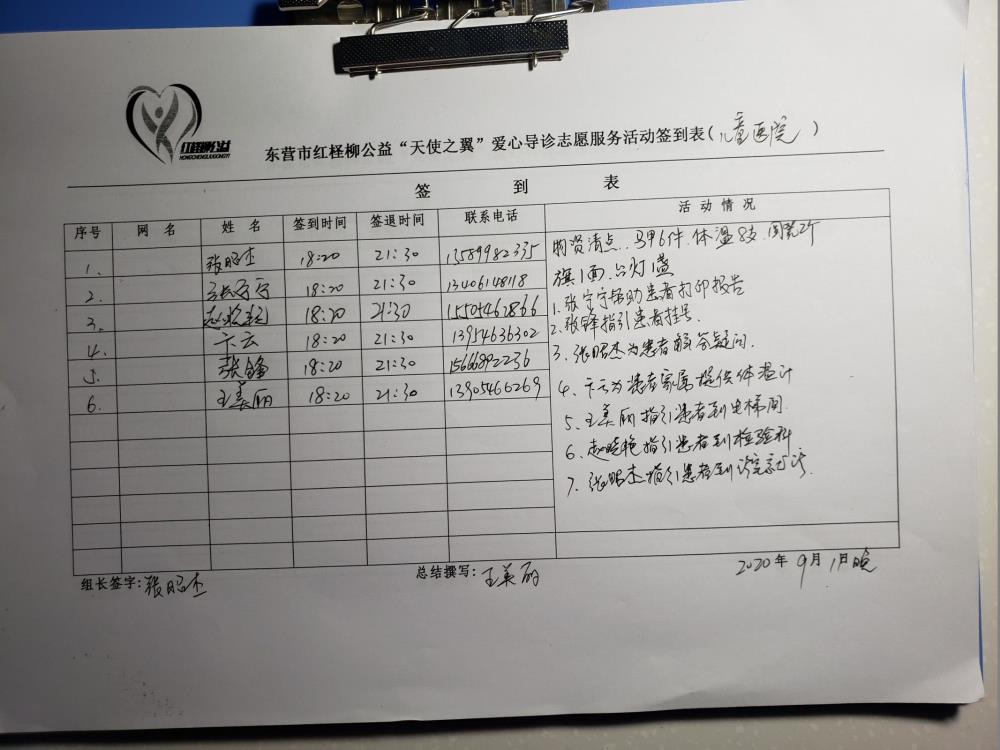 红柽柳公益
HONGCHENGLIUGONGYI
东营市红柽柳公益“天使之翼”爱心导诊志愿服务活动签到表(儿童医院)
签 到 表
序号 网 名 姓 名 签到时间 签退时间 联系电话 活 动 情 况
1. 张昭杰 18:20 21:30 13589982335
2. 张宁宁 18:20 21:30 13406148118
3. 赵晓艳 18:20 21:30 15504462866
4. 卞云 18:20 21:30 13954636302
5. 张锋 18:20 21:30 15666892236
6. 王美丽 18:20 21:30 13905466269
物资清点:马甲6件.体温8支.
旗1面.台灯1盏
1.张宁宁帮助患者打印报告
2.张锋指引患者挂号.
3.张昭杰为患者解答疑问.
4.卞云为患者家属提供体温计
5.王美丽指引患者到电梯间.
6.赵晓艳指引患者到检验科
7.张昭杰指引患者到
组长签字:张昭杰 总结撰写:王美丽 2020年9月1日晚